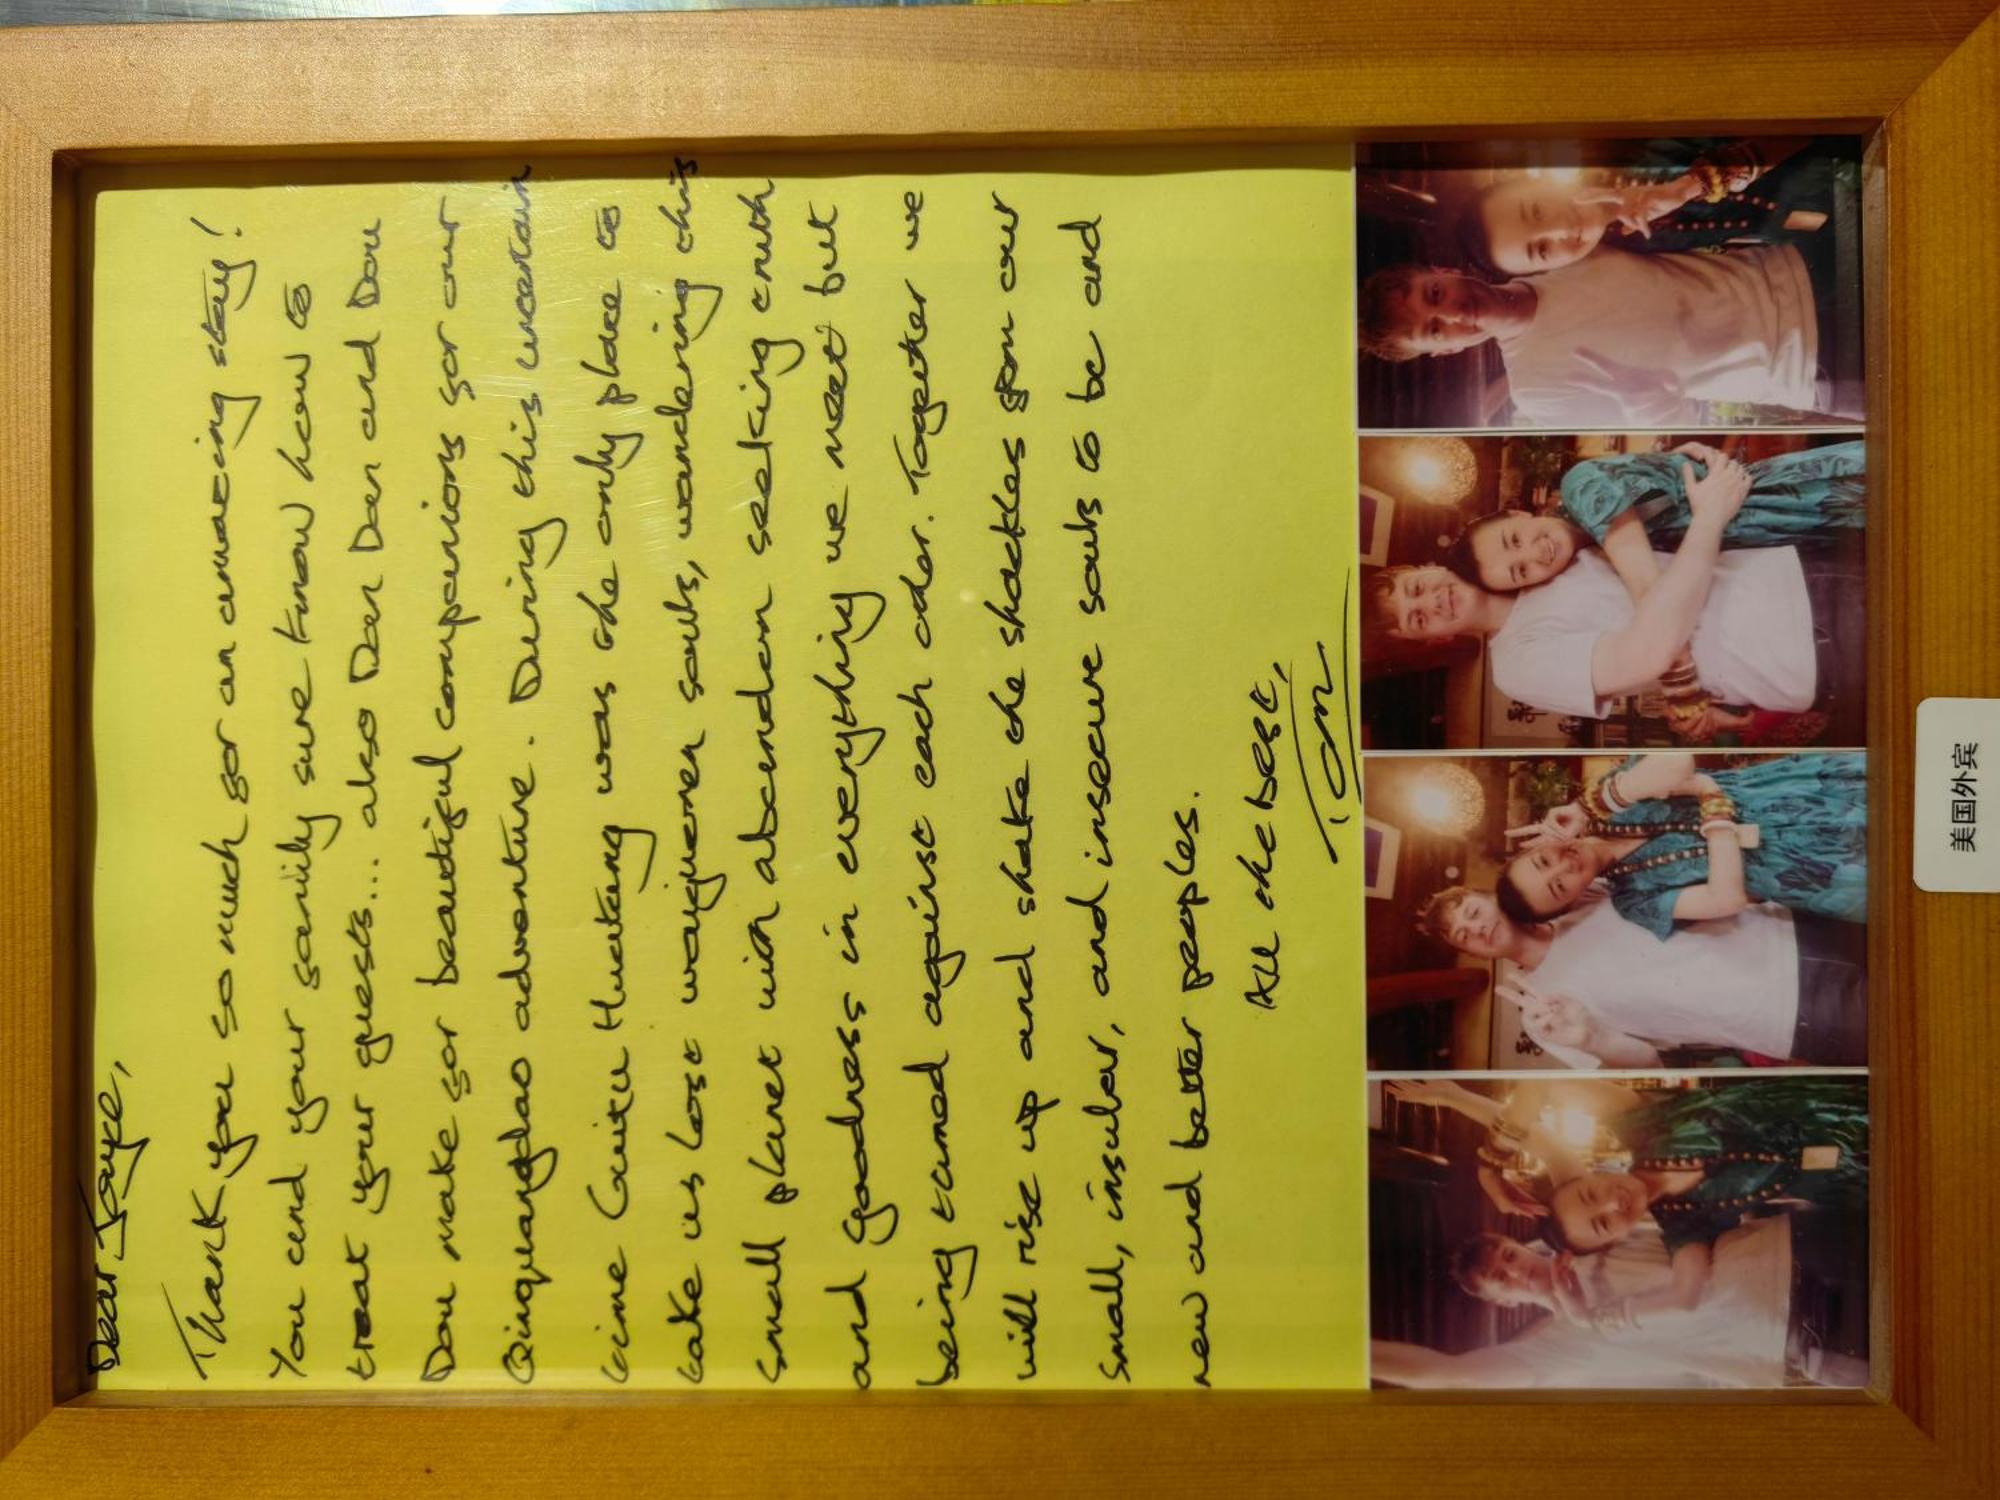 Dear Joyce,
Thank you so much for an amazing stay!
You and your family sure know how to
treat your guests... also Dan Dan and Dou
Dou make for beautiful companions for our
Qinquangdao adventure. During this uncertain
time Cuitu Hutong was the only place to
take us lost wayguerer souls, wandering this
small planet with abandon seeking truth
and goodness in everything we meet but
being turned against each other. Together we
will rise up and shake the shackles from our
small, insular, and insecure souls to be and
new and better peoples.
All the best,
Tom
美国外宾